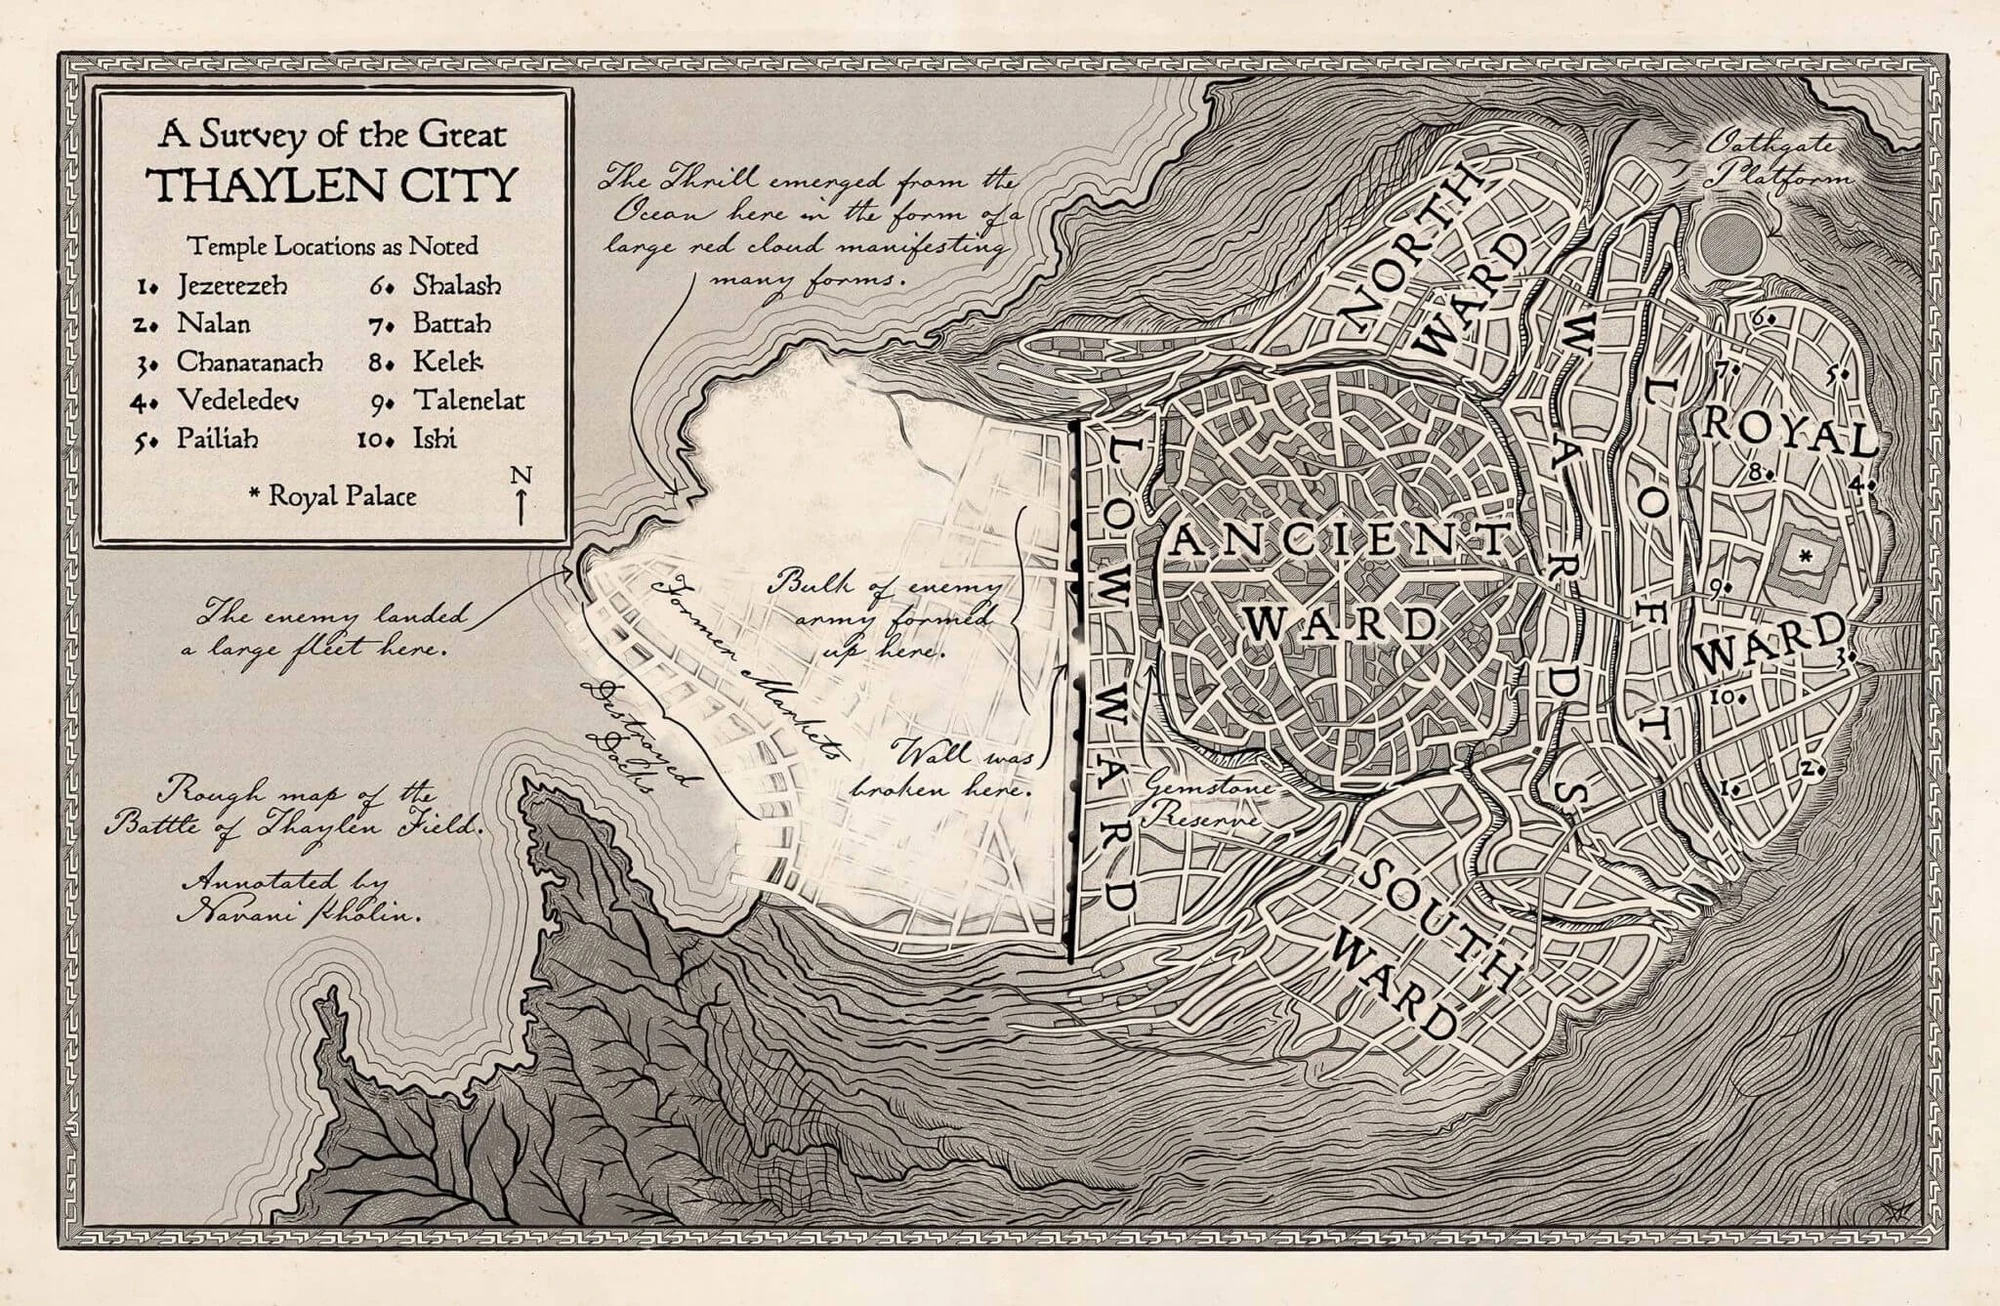 A Survey of the Great
THAYLEN CITY
Temple Locations as Noted
1. Jezerezeh
2. Nalan
3. Chanaranach
4. Vedeledev
5. Pailiah
6. Shalash
7. Battah
8. Kelek
9. Talenelat
10. Ishi
* Royal Palace
N
The Thrill emerged from the
Ocean here in the form of a
large red cloud manifesting
many forms.
Oathgate
Platform
NORTH
WARD
6.
7.
5.
ROYAL
8.
4.
*
9.
WARD
3.
10.
2.
1.
LOFT
WARDS
LOW WARD
ANCIENT
WARD
The enemy landed
a large fleet here.
Former Markets
Bulk of enemy
army formed
up here.
Destroyed
Docks
Wall was
broken here.
Gemstone
Reserve
SOUTH
WARD
Rough map of the
Battle of Thaylen Field.
Annotated by
Navani Kholin.